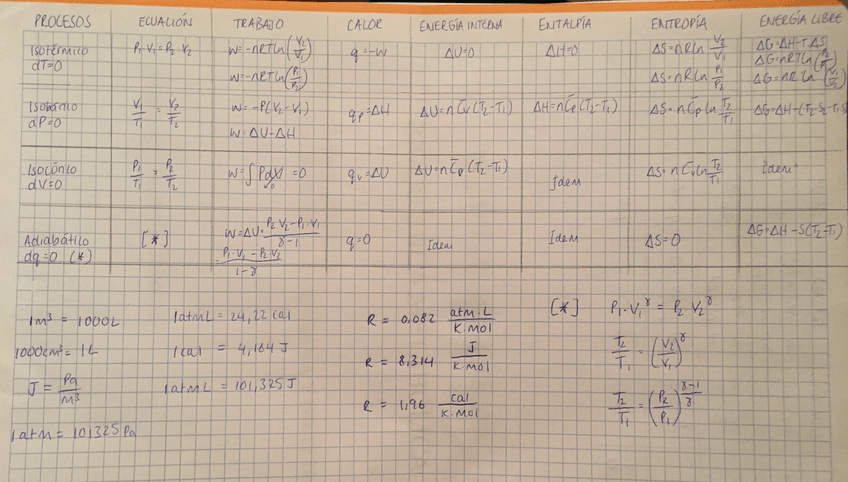 PROCESOS ECUACIÓN TRABAJO CALOR ENERGÍA INTERNA ENTALPÍA ENTROPÍA ENERGÍA LIBRE
Isotérmico dT=0 P₁·V₁=P₂·V₂ W=-nRTln(V₂/V₁) q=-W ΔU=0 ΔH=0 ΔS=nRln V₂/V₁ ΔG=ΔH-T·ΔS
W=-nRTln(P₁/P₂) ΔS=nRln P₁/P₂ ΔG=nRTln(P₂/P₁)
ΔG=nRln(V₁/V₂)
Isobárico dP=0 V₁/T₁ = V₂/T₂ W=-P(V₂-V₁) qp=ΔH ΔU=nC̅v(T₂-T₁) ΔH=nC̅p(T₂-T₁) ΔS=nC̅p ln T₂/T₁ ΔG=ΔH-(T₂·S₂-T₁·S
W=ΔU-ΔH
Isocórico dV=0 P₁/T₁ = P₂/T₂ W=∫PdV=0 qv=ΔU ΔU=nC̅p(T₂-T₁) Idem ΔS=nC̅v ln T₂/T₁ Idem
Adiabático dq=0 (*) [*] W=ΔU= P₂·V₂-P₁·V₁/γ-1 q=0 Idem Idem ΔS=0 ΔG=ΔH-S(T₂-T₁)
P₁·V₁-P₂·V₂/1-γ
1m³ = 1000L
1000cm³ = 1L
J = Pa/m³
1atm = 101325Pa
1atmL = 24,22 cal
1cal = 4,184 J
1atmL = 101,325J
R = 0,082 atm·L/K·mol
R = 8,314 J/K·mol
R = 1,96 cal/K·mol
[*] P₁·V₁^γ = P₂·V₂^γ
T₂/T₁ = (V₂/V₁)^γ
T₂/T₁ = (P₂/P₁)^γ-1/γ